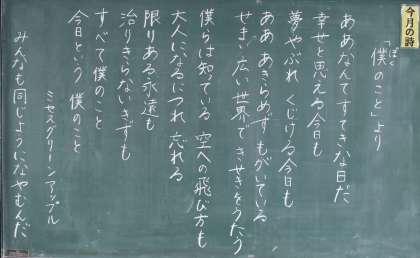 今月の詩
「僕のこと」より
ぼく
ああなんてすてきな日だ
幸せと思える今日も
夢やぶれ くじける今日も
ああ あきらめずもがいている
せまい広い世界で きせきをうたう
僕らは知っている 空への飛び方も
大人になるにつれ 忘れる
限りある永遠も
治りきらないきずも
すべて僕のこと
今日という 僕のこと
ミセスグリーンアップル
みんなも同じようになやむんだ